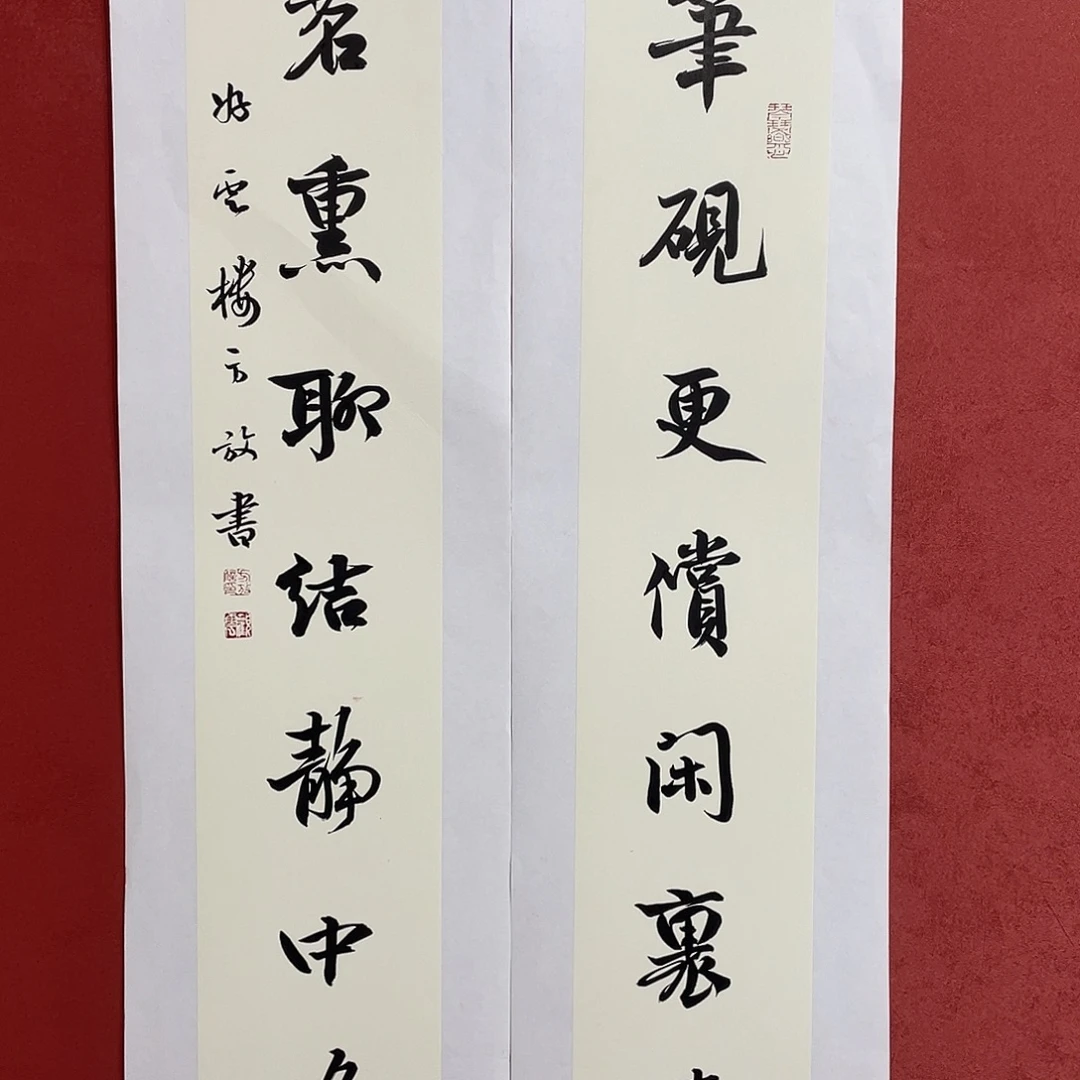 筆硯更償閑裏
茗熏聊結静中
好雲樓方放書